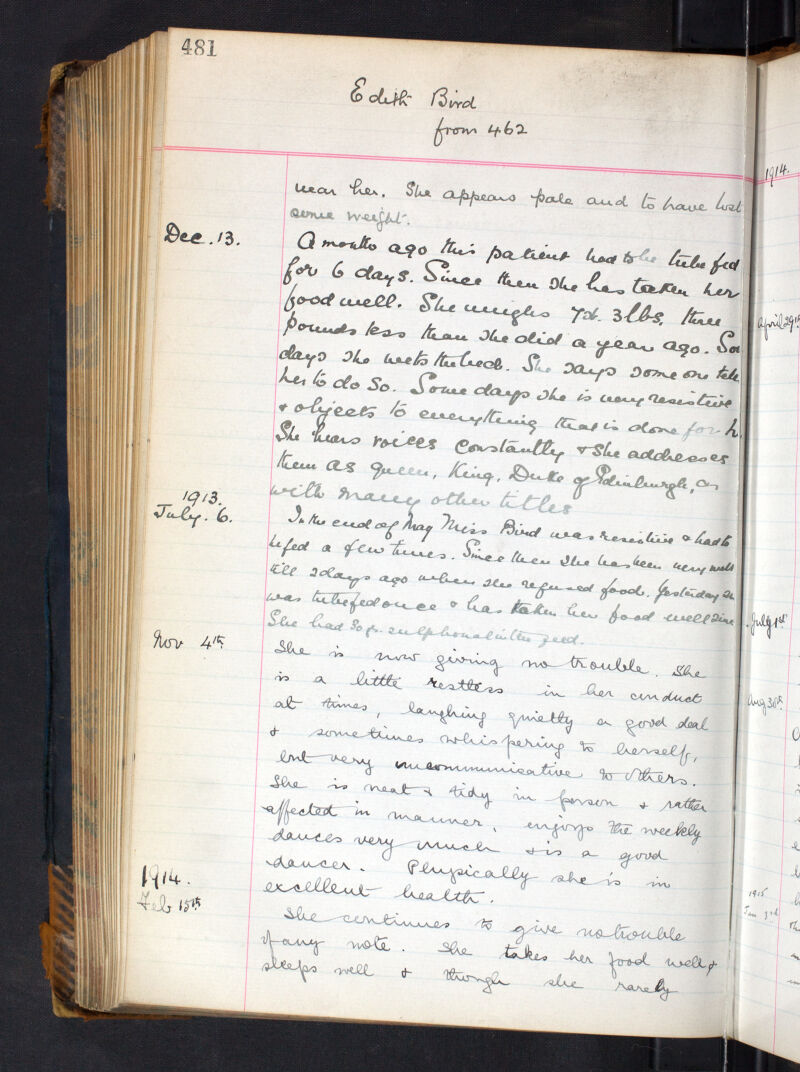 481
Edith Bird
from 462
near her. She appears pale and to have lost
some weight.
Dec. 13. A month ago this patient had to be tube fed
for 6 days. Since then she has taken her
food well. She weighs 7st. 3lbs, three
pounds less than she did a year ago. Som
days she wets the bed. She says some one tells
her to do so. Some days she is very resistive
& objects to everything that is done for h
She hears voices constantly & she addresses
them as queen, King, Duke of Edinburgh, as
with many other titles
1913.
July. 6. In the end of May Miss Bird was resistive & had to
be fed a few times. Since then she has been very well
till 2 days ago when she refused food. Yesterday she
was tube fed once & has taken her food well since
She had 30 grs. sulphonal in the feed.
Nov 4th She is now giving no trouble. She
is a little restless in her conduct
at times, laughing quietly a good deal
& sometimes whispering to herself,
but very uncommunicative to others.
She is neat & tidy in person & rather
affected in manner, enjoys the weekly
dances very much & is a good
dancer. Physically she is in
excellent health.
1914.
Feb 15th She continues to give no trouble
of any note. She takes her food well &
sleeps well & though she rarely
1914.
April 29th
July 1st
Aug 30th
1915
Jan 3rd